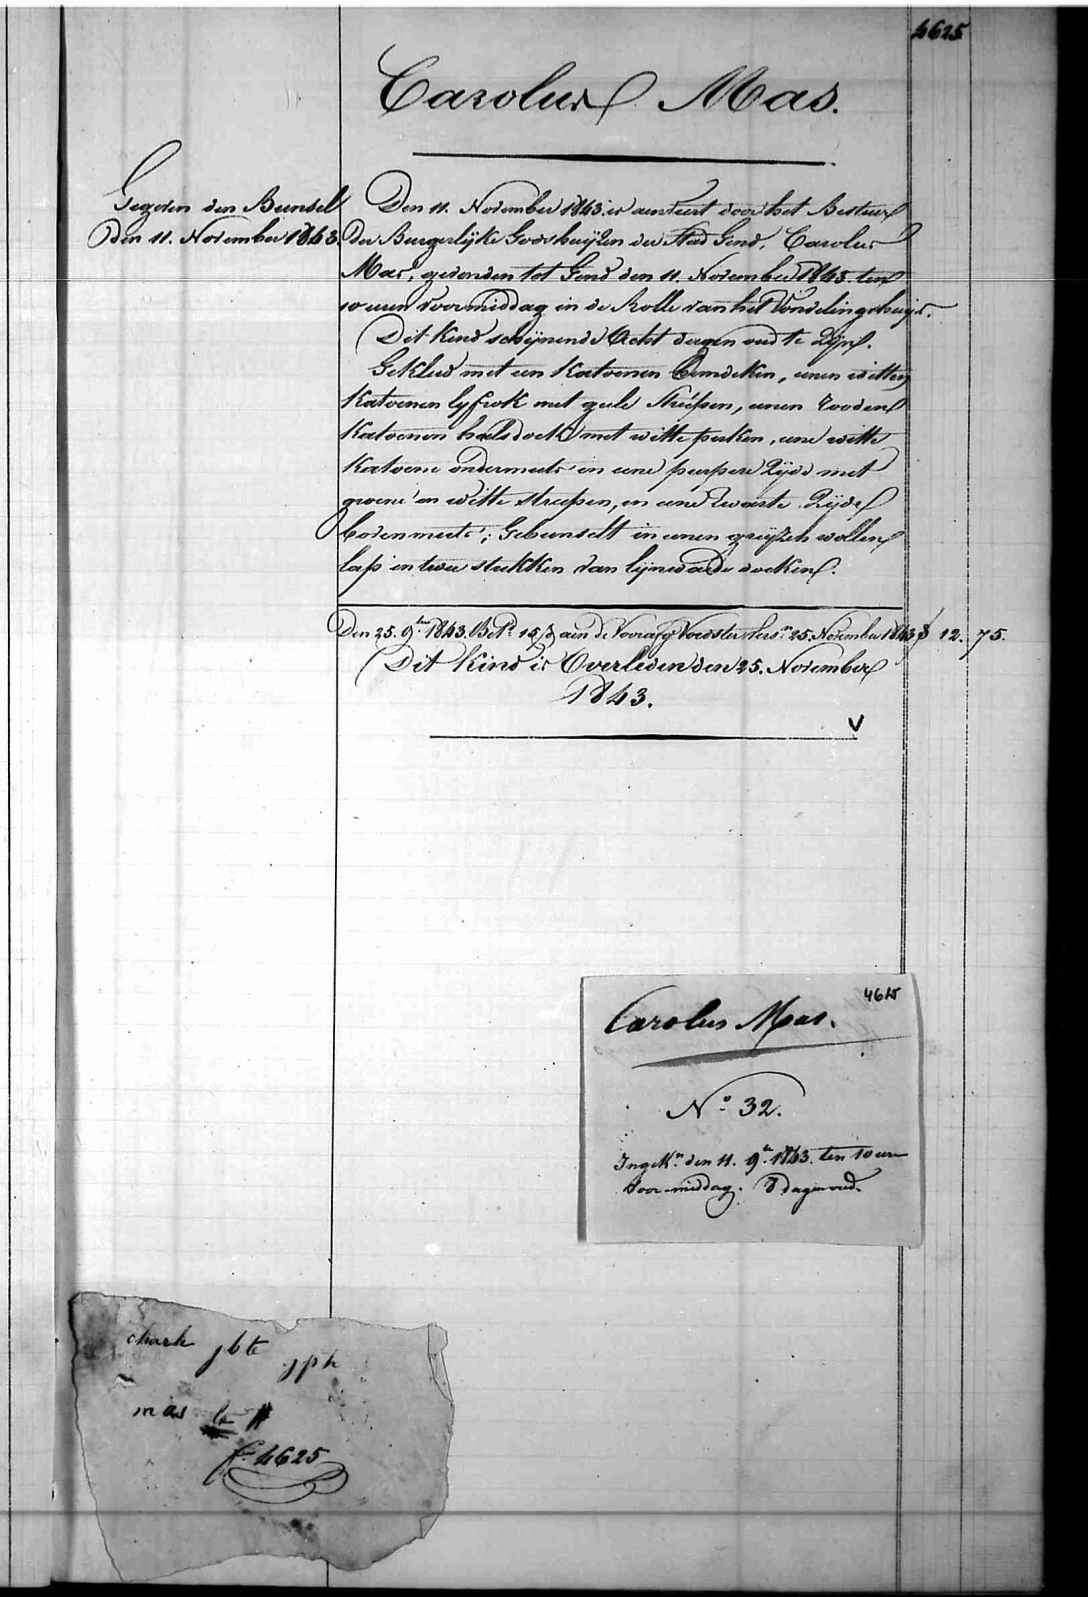 4625
Carolus Mas.
Gegeven den Bunsel
den 11. November 1843.
Den 11. November 1843. is aenveert door het Bestuer
der Burgerlijke Godshuijzen der Stad Gend, Carolus
Mas, gevonden tot Gend den 11. November 1843. ten
10 uren voormiddag in de Rolle van het Vondelingshuijs.
Dit Kind schijnende Acht dagen oud te Zijn.
Gekleed met een Katoenen hemdeken, eenen witten
Katoenen lyfrok met geele streépen, eenen rooden
Katoenen halsdoek met witte perken, eene witte
Katoene ondermuts en eene purpere Zijde met
groene en witte streepen, en eene Zwarte Zijde
bovenmuts; Gebunselt in eenen grijzen wollen
lap en twee stukken van lijnwaede doeken.
Den 25. 9ber 1843. Betd. 15 aen de Voorafg Voedster 25. November 1843 12. 75.
Dit Kind is Overleden den 25. November
1843.
V
4625
Carolus Mas.
No. 32.
Ingekn. den 11. 9br. 1843. ten 10 uren
voor-middag. 8 dagen oud.
charle jbte jph
mas
f. 4625